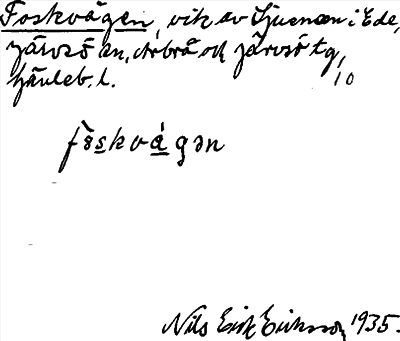 Foskvågen, vik av Ljusnan i Ede,
Järvsö sn, Arbrå och Järvsö tg,
Gävleb. l. 10
fòskvágən
Nils Erik Eriksson 1935.